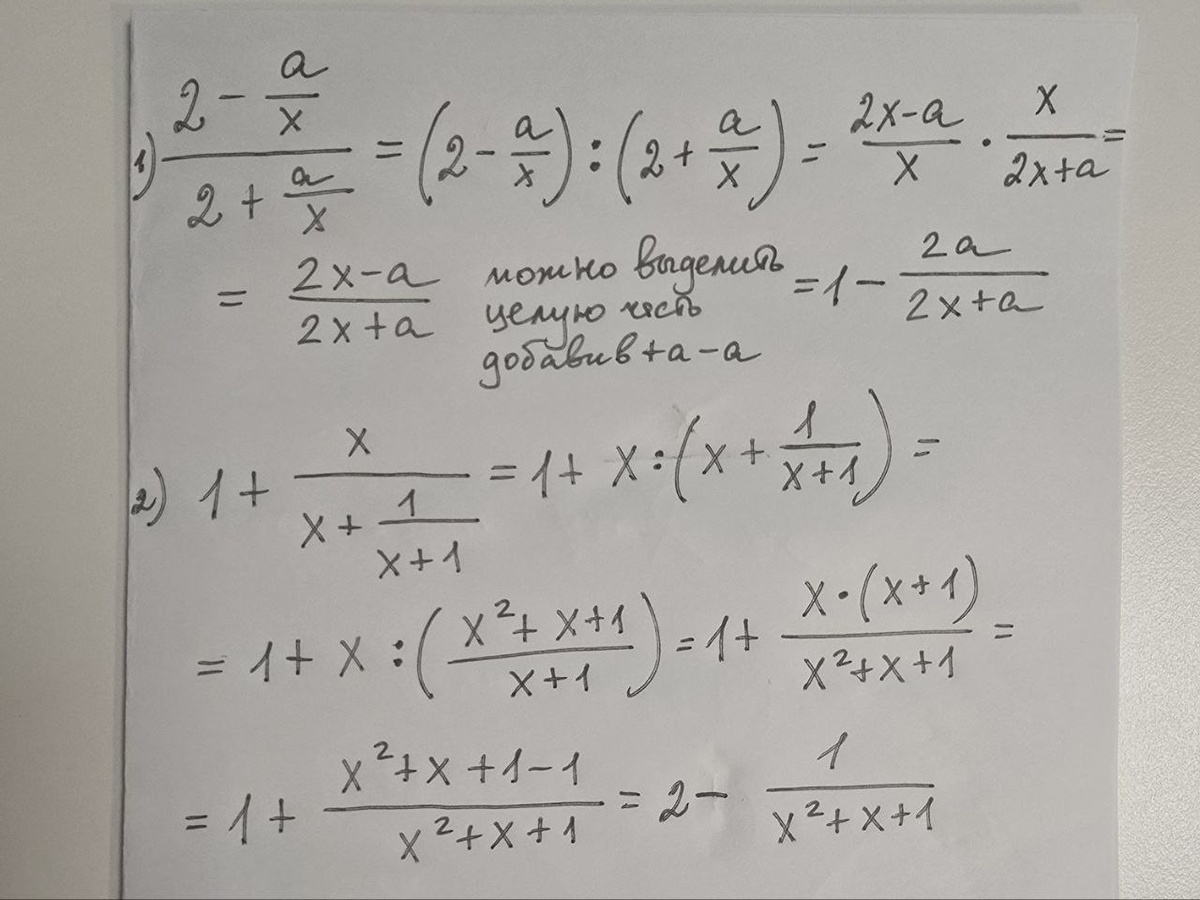 1) (2 - a/x)/(2 + a/x) = (2 - a/x) : (2 + a/x) = (2x-a)/x · x/(2x+a) =
= (2x-a)/(2x+a) можно выделить целую часть добавив +a-a = 1 - 2a/(2x+a)
2) 1 + x/(x + 1/(x+1)) = 1 + x : (x + 1/(x+1)) =
= 1 + x : ((x²+x+1)/(x+1)) = 1 + (x·(x+1))/(x²+x+1) =
= 1 + (x²+x+1-1)/(x²+x+1) = 2 - 1/(x²+x+1)